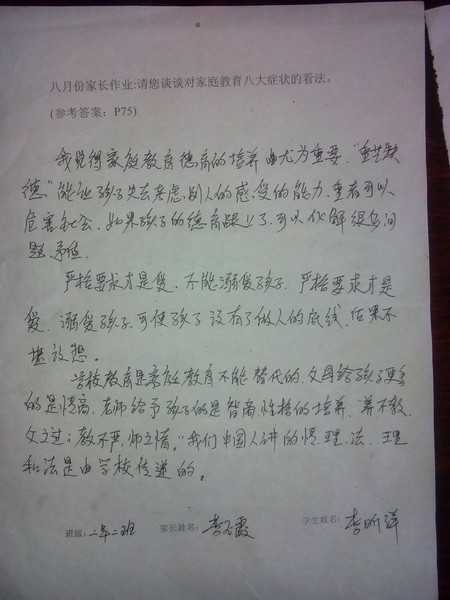 八月份家长作业:请您谈谈对家庭教育八大症状的看法。
(参考答案：P75)
我觉得家庭教育德育的培养尤为重要."重艺缺
德"能让孩子失去考虑别人的感受的能力.重者可以
危害社会.如果孩子的德育跟上了.可以化解很多问
题.矛盾.
严格要求才是爱.不能溺爱孩子.严格要求才是
爱.溺爱孩子.可使孩子没有了做人的底线.后果不
堪设想。
学校教育是家庭教育不能替代的.父母给孩子更多
的是情商.老师给予孩子的是智商.性格的培养.养不教.
父之过;教不严.师之惰."我们中国人讲的情.理.法.理
和法是由学校传递的。
班级:二年二班 家长姓名: 李 霞 学生姓名: 李昕洋